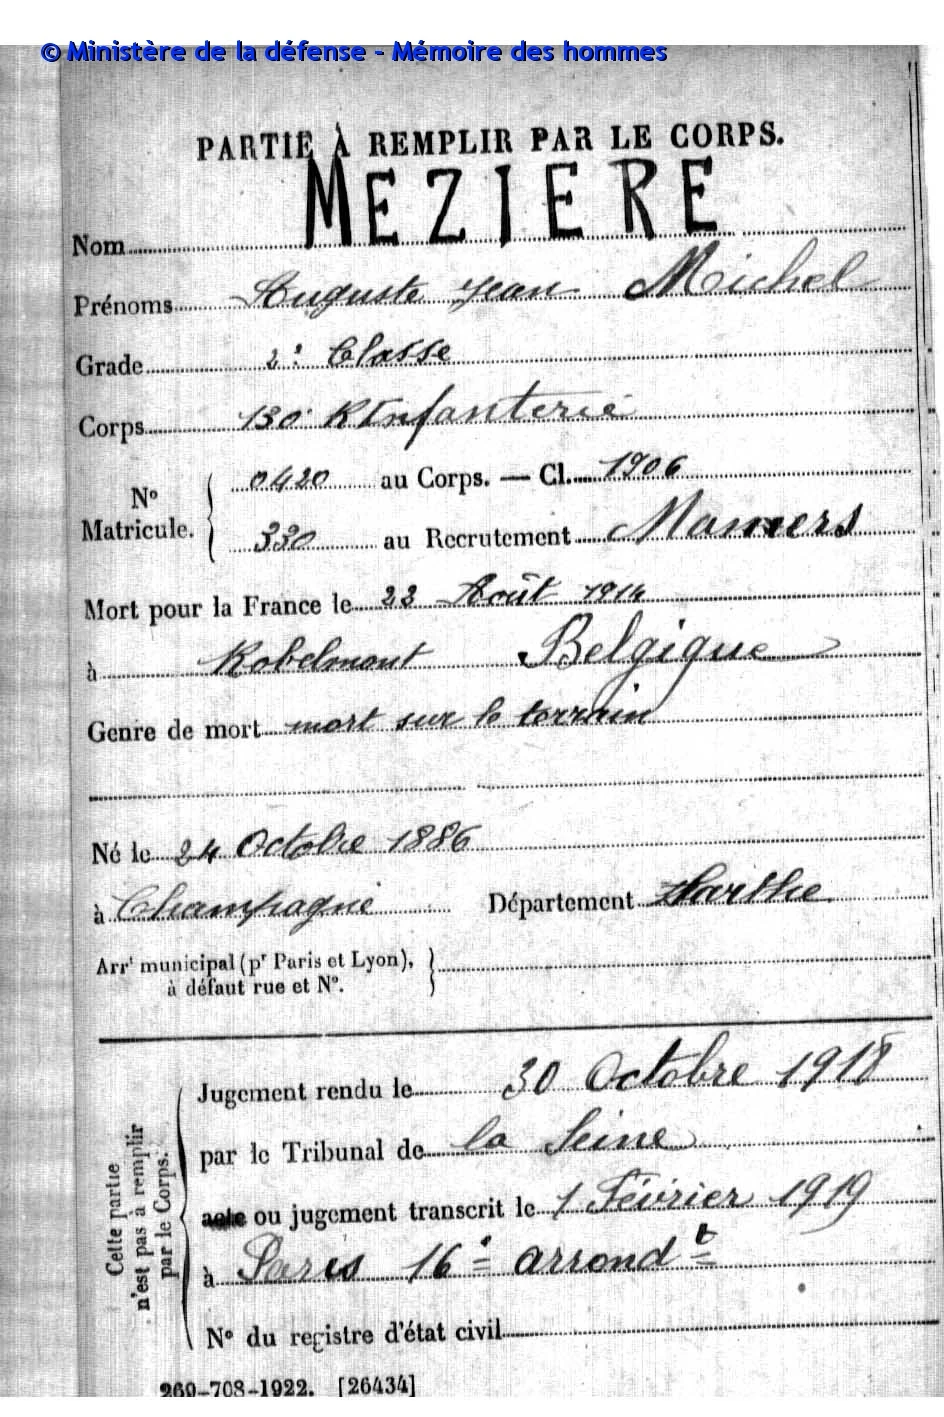 © Ministère de la défense - Mémoire des hommes
PARTIE À REMPLIR PAR LE CORPS.
Nom MEZIERE
Prénoms Auguste Jean Michel
Grade 2e Classe
Corps 130e R Infanterie
No Matricule. { 0420 au Corps. — Cl. 1906
330 au Recrutement Mamers
Mort pour la France le 22 Août 1914
à Robelmont Belgique
Genre de mort mort sur le terrain
Né le 24 Octobre 1886
à Champagné Département Sarthe
Arrt municipal (pr Paris et Lyon), }
à défaut rue et No.
Cette partie n'est pas à remplir par le Corps.
Jugement rendu le 30 Octobre 1918
par le Tribunal de la Seine
acte ou jugement transcrit le 1 Février 1919
à Paris 16e arrondt
No du registre d'état civil
269-708-1922. [26434]